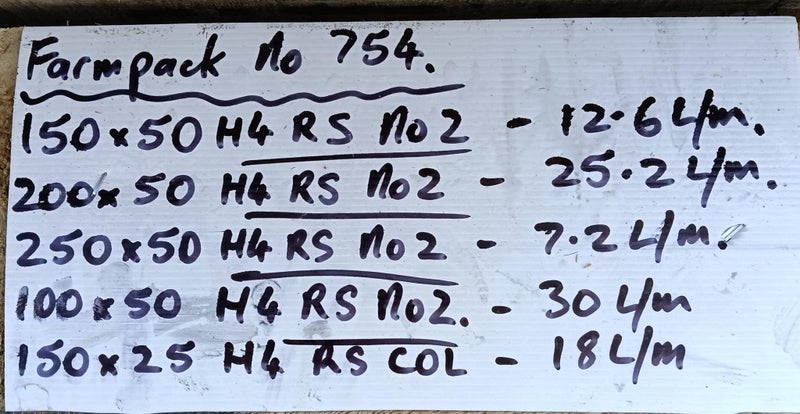 Farmpack No 754.
150x50 H4 RS No2 - 12.6 L/m.
200x50 H4 RS No2 - 25.2 L/m.
250x50 H4 RS No2 - 7.2 L/m.
100x50 H4 RS No2. - 30 L/m
150x25 H4 RS COL - 18 L/m